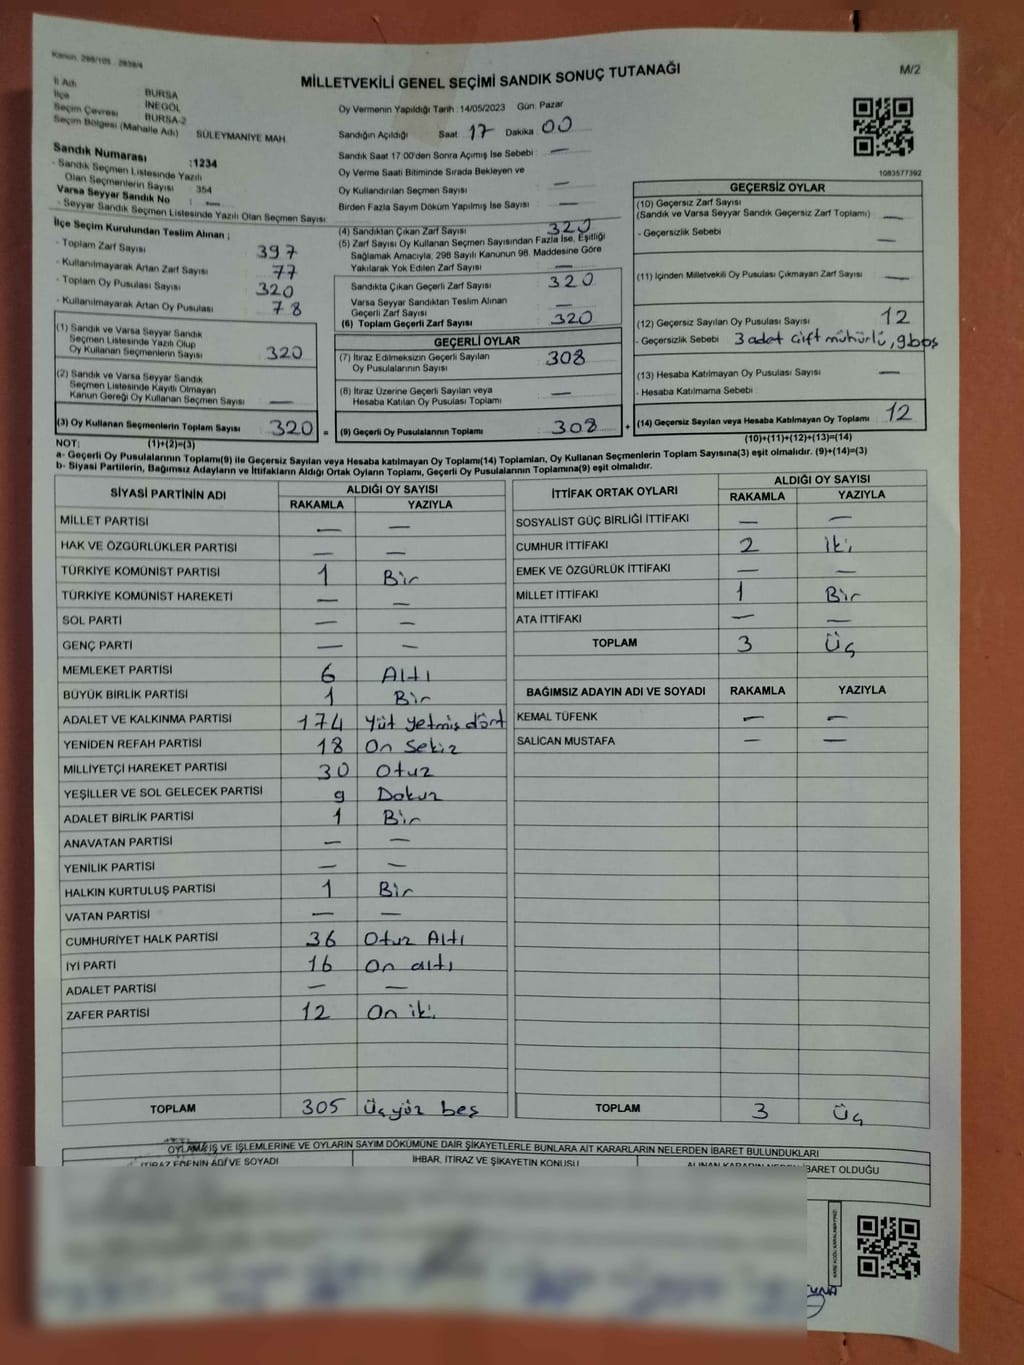 Kanun. 298/105 - 2839/4
MİLLETVEKİLİ GENEL SEÇİMİ SANDIK SONUÇ TUTANAĞI
M/2
İl Adı BURSA
İlçe İNEGÖL
Seçim Çevresi BURSA-2
Seçim Bölgesi (Mahalle Adı) SÜLEYMANİYE MAH
Sandık Numarası :1234
- Sandık Seçmen Listesinde Yazılı
Olan Seçmenlerin Sayısı 354
Varsa Seyyar Sandık No : —
- Seyyar Sandık Seçmen Listesinde Yazılı Olan Seçmen Sayısı
İlçe Seçim Kurulundan Teslim Alınan ;
- Toplam Zarf Sayısı 397
- Kullanılmayarak Artan Zarf Sayısı 77
- Toplam Oy Pusulası Sayısı 320
- Kullanılmayarak Artan Oy Pusulası 78
(1) Sandık ve Varsa Seyyar Sandık
Seçmen Listesinde Yazılı Olup
Oy Kullanan Seçmenlerin Sayısı 320
(2) Sandık ve Varsa Seyyar Sandık
Seçmen Listesinde Kayıtlı Olmayan
Kanun Gereği Oy Kullanan Seçmen Sayısı —
(3) Oy Kullanan Seçmenlerin Toplam Sayısı 320 =
Oy Vermenin Yapıldığı Tarih :14/05/2023 Gün: Pazar
Sandığın Açıldığı Saat: 17 Dakika: 00
Sandık Saat 17:00'den Sonra Açımış İse Sebebi : —
Oy Verme Saati Bitiminde Sırada Bekleyen ve
Oy Kullandırılan Seçmen Sayısı : —
Birden Fazla Sayım Döküm Yapılmış İse Sayısı : —
(4) Sandıktan Çıkan Zarf Sayısı : 320
(5) Zarf Sayısı Oy Kullanan Seçmen Sayısından Fazla İse, Eşitliği
Sağlamak Amacıyla, 298 Sayılı Kanunun 98. Maddesine Göre
Yakılarak Yok Edilen Zarf Sayısı : —
Sandıkta Çıkan Geçerli Zarf Sayısı : 320
Varsa Seyyar Sandıktan Teslim Alınan
Geçerli Zarf Sayısı : —
(6) Toplam Geçerli Zarf Sayısı : 320
GEÇERLİ OYLAR
(7) İtiraz Edilmeksizin Geçerli Sayılan
Oy Pusulalarının Sayısı : 308
(8) İtiraz Üzerine Geçerli Sayılan veya
Hesaba Katılan Oy Pusulası Toplamı : —
(9) Geçerli Oy Pusulalarının Toplamı : 308 +
1083577392
GEÇERSİZ OYLAR
(10) Geçersiz Zarf Sayısı
(Sandık ve Varsa Seyyar Sandık Geçersiz Zarf Toplamı) : —
- Geçersizlik Sebebi : —
(11) İçinden Milletvekili Oy Pusulası Çıkmayan Zarf Sayısı : —
(12) Geçersiz Sayılan Oy Pusulası Sayısı : 12
- Geçersizlik Sebebi : 3 adet çift mühürlü, 9 boş
(13) Hesaba Katılmayan Oy Pusulası Sayısı : —
- Hesaba Katılmama Sebebi :
(14) Geçersiz Sayılan veya Hesaba Katılmayan Oy Toplamı : 12
NOT: (1)+(2)=(3) (10)+(11)+(12)+(13)=(14)
a- Geçerli Oy Pusulalarının Toplamı(9) ile Geçersiz Sayılan veya Hesaba katılmayan Oy Toplamı(14) Toplamları, Oy Kullanan Seçmenlerin Toplam Sayısına(3) eşit olmalıdır. (9)+(14)=(3)
b- Siyasi Partilerin, Bağımsız Adayların ve İttifakların Aldığı Ortak Oyların Toplamı, Geçerli Oy Pusulalarının Toplamına(9) eşit olmalıdır.
SİYASİ PARTİNİN ADI ALDIĞI OY SAYISI
RAKAMLA YAZIYLA
MİLLET PARTİSİ — —
HAK VE ÖZGÜRLÜKLER PARTİSİ — —
TÜRKİYE KOMÜNİST PARTİSİ 1 Bir
TÜRKİYE KOMÜNİST HAREKETİ — —
SOL PARTİ — —
GENÇ PARTİ — —
MEMLEKET PARTİSİ 6 Altı
BÜYÜK BİRLİK PARTİSİ 1 Bir
ADALET VE KALKINMA PARTİSİ 174 Yüt yetmiş dört
YENİDEN REFAH PARTİSİ 18 On Sekiz
MİLLİYETÇİ HAREKET PARTİSİ 30 Otuz
YEŞİLLER VE SOL GELECEK PARTİSİ 9 Dokuz
ADALET BİRLİK PARTİSİ 1 Bir
ANAVATAN PARTİSİ — —
YENİLİK PARTİSİ — —
HALKIN KURTULUŞ PARTİSİ 1 Bir
VATAN PARTİSİ — —
CUMHURİYET HALK PARTİSİ 36 Otuz Altı
İYİ PARTİ 16 On altı
ADALET PARTİSİ — —
ZAFER PARTİSİ 12 On iki
TOPLAM 305 Üçyüz beş
İTTİFAK ORTAK OYLARI ALDIĞI OY SAYISI
RAKAMLA YAZIYLA
SOSYALİST GÜÇ BİRLİĞİ İTTİFAKI — —
CUMHUR İTTİFAKI 2 İki
EMEK VE ÖZGÜRLÜK İTTİFAKI — —
MİLLET İTTİFAKI 1 Bir
ATA İTTİFAKI — —
TOPLAM 3 Üç
BAĞIMSIZ ADAYIN ADI VE SOYADI RAKAMLA YAZIYLA
KEMAL TÜFENK — —
SALİCAN MUSTAFA — —
TOPLAM 3 Üç
OYLAMA İŞ VE İŞLEMLERİNE VE OYLARIN SAYIM DÖKÜMÜNE DAİR ŞİKAYETLERLE BUNLARA AİT KARARLARIN NELERDEN İBARET BULUNDUKLARI
İTİRAZ EDENİN ADI VE SOYADI İHBAR, İTİRAZ VE ŞİKAYETİN KONUSU ALINAN KARARIN NEDEN İBARET OLDUĞU